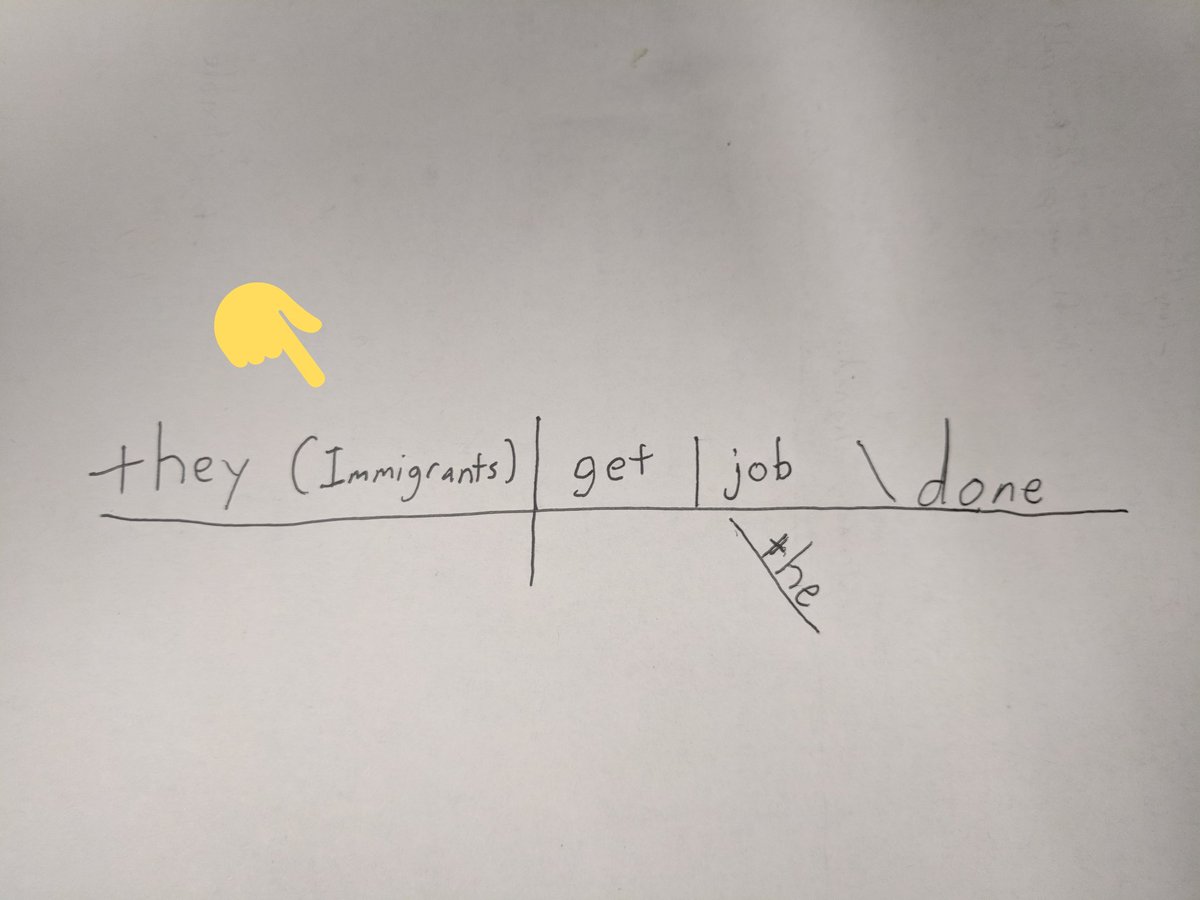 they (Immigrants) get job done
the